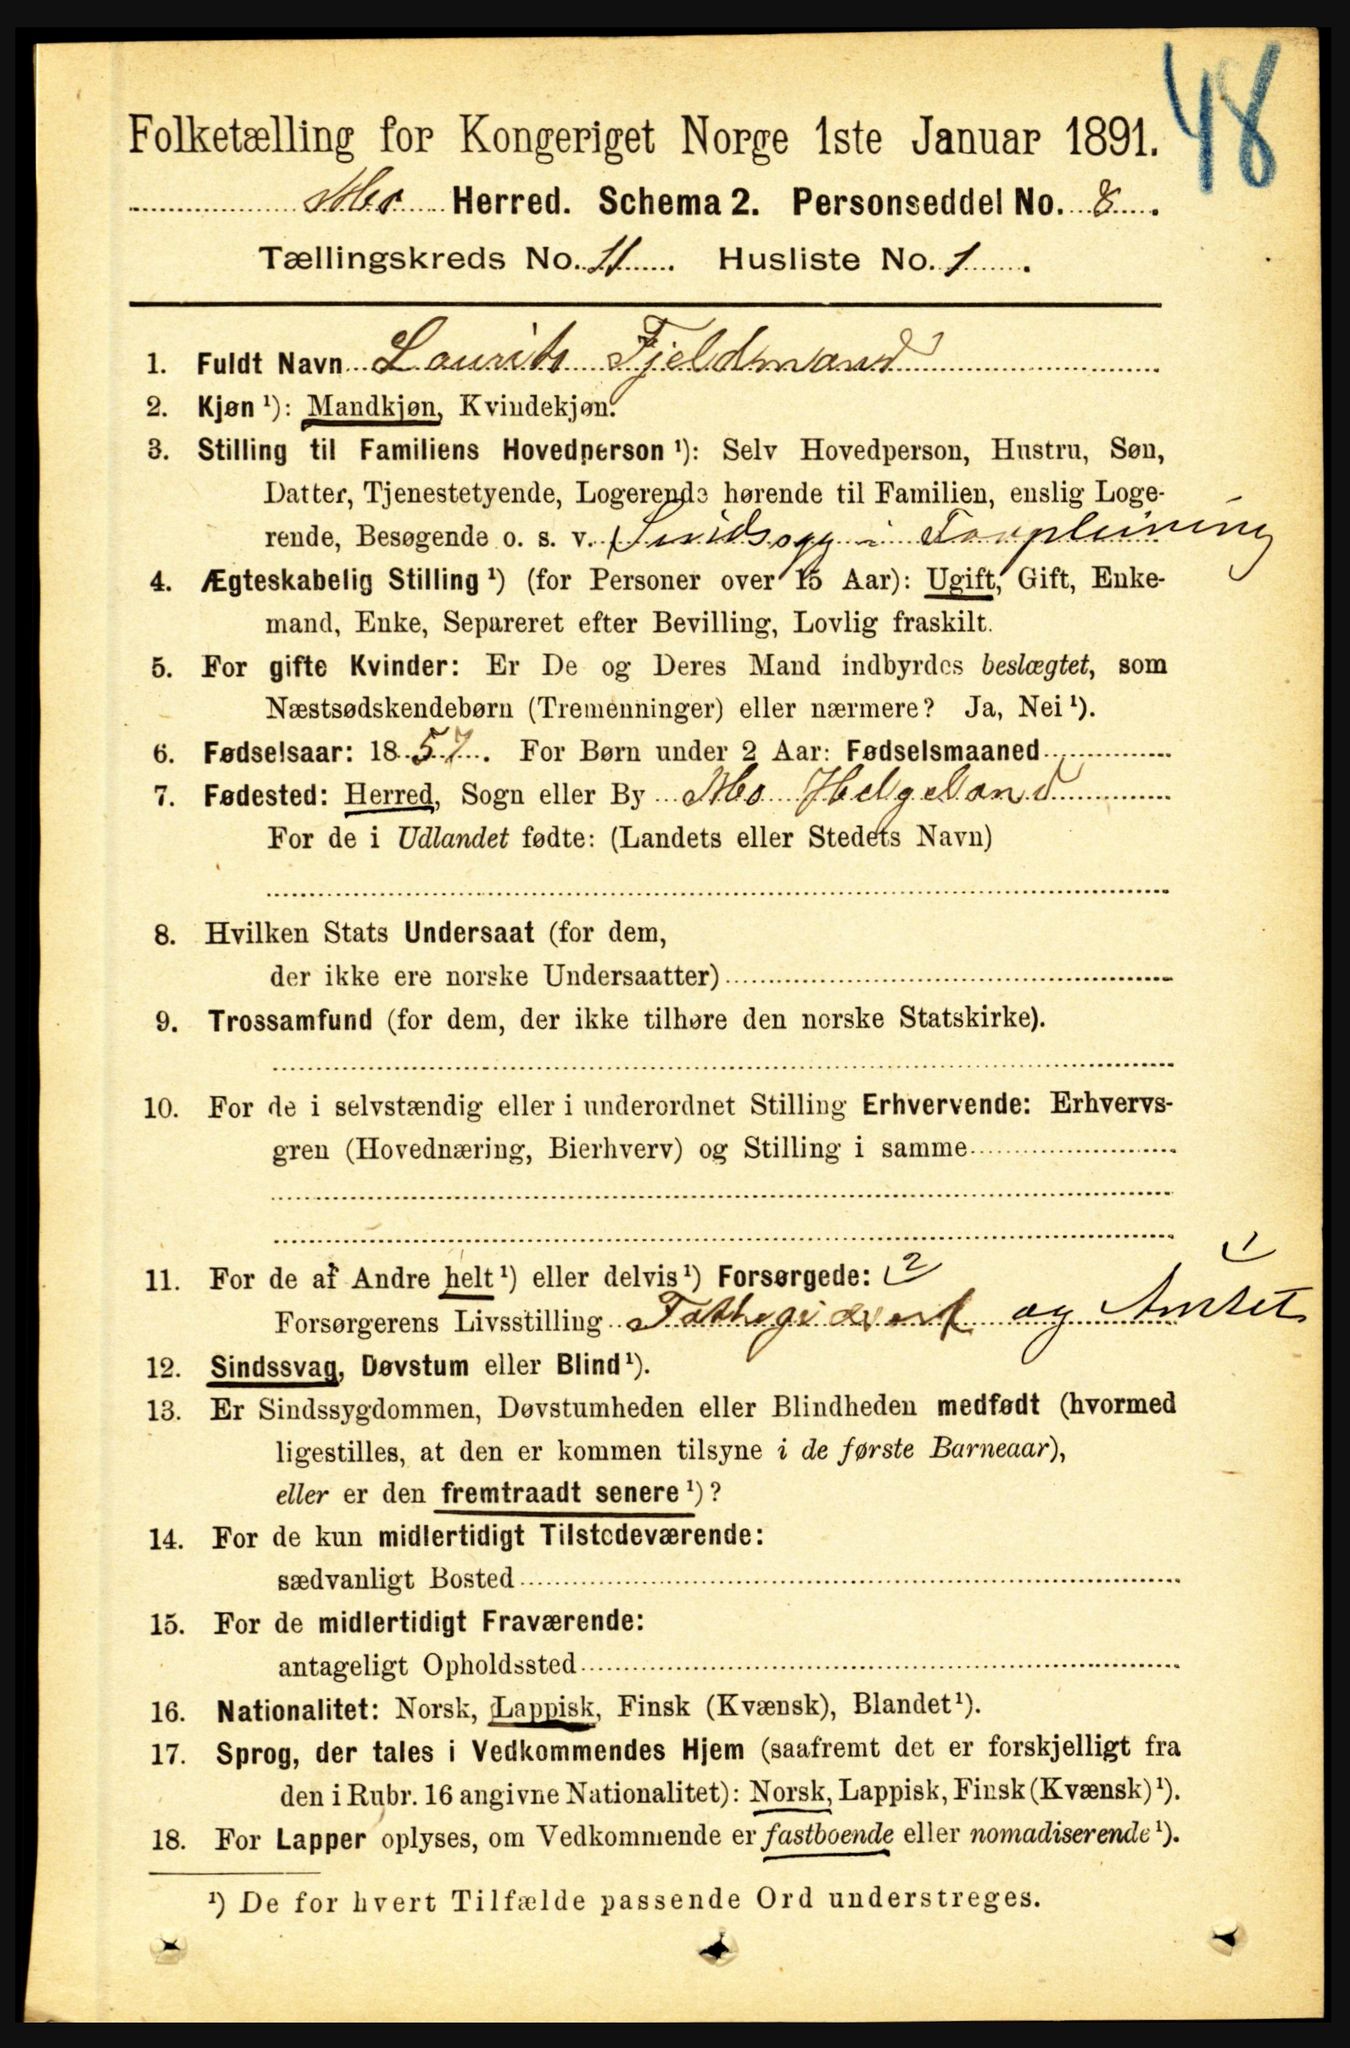 48
Folketælling for Kongeriget Norge 1ste Januar 1891.
Mo Herred. Schema 2. Personseddel No. 8.
Tællingskreds No. 11. Husliste No. 1.
1. Fuldt Navn Laurits Fjeldmand
2. Kjøn ¹): Mandkjøn, Kvindekjøn.
3. Stilling til Familiens Hovedperson ¹): Selv Hovedperson, Hustru, Søn,
Datter, Tjenestetyende, Logerende hørende til Familien, enslig Loge-
rende, Besøgende o. s. v. Sindssyg i Forpleining
4. Ægteskabelig Stilling ¹) (for Personer over 15 Aar): Ugift, Gift, Enke-
mand, Enke, Separeret efter Bevilling, Lovlig fraskilt.
5. For gifte Kvinder: Er De og Deres Mand indbyrdes beslægtet, som
Næstsødskendebørn (Tremenninger) eller nærmere? Ja, Nei ¹).
6. Fødselsaar: 1857. For Børn under 2 Aar: Fødselsmaaned
7. Fødested: Herred, Sogn eller By Mo Helgeland
For de i Udlandet fødte: (Landets eller Stedets Navn)
8. Hvilken Stats Undersaat (for dem,
der ikke ere norske Undersaatter)
9. Trossamfund (for dem, der ikke tilhøre den norske Statskirke).
10. For de i selvstændig eller i underordnet Stilling Erhvervende: Erhvervs-
gren (Hovednæring, Bierhverv) og Stilling i samme
1
11. For de af Andre helt ¹) eller delvis ¹) Forsørgede: 2
Forsørgerens Livsstilling og Amtet
12. Sindssvag, Døvstum eller Blind ¹).
13. Er Sindssygdommen, Døvstumheden eller Blindheden medfødt (hvormed
ligestilles, at den er kommen tilsyne i de første Barneaar),
eller er den fremtraadt senere ¹)?
14. For de kun midlertidigt Tilstedeværende:
sædvanligt Bosted
15. For de midlertidigt Fraværende:
antageligt Opholdssted
16. Nationalitet: Norsk, Lappisk, Finsk (Kvænsk), Blandet ¹).
17. Sprog, der tales i Vedkommendes Hjem (saafremt det er forskjelligt fra
den i Rubr. 16 angivne Nationalitet): Norsk, Lappisk, Finsk (Kvænsk) ¹).
18. For Lapper oplyses, om Vedkommende er fastboende eller nomadiserende ¹).
¹) De for hvert Tilfælde passende Ord understreges.